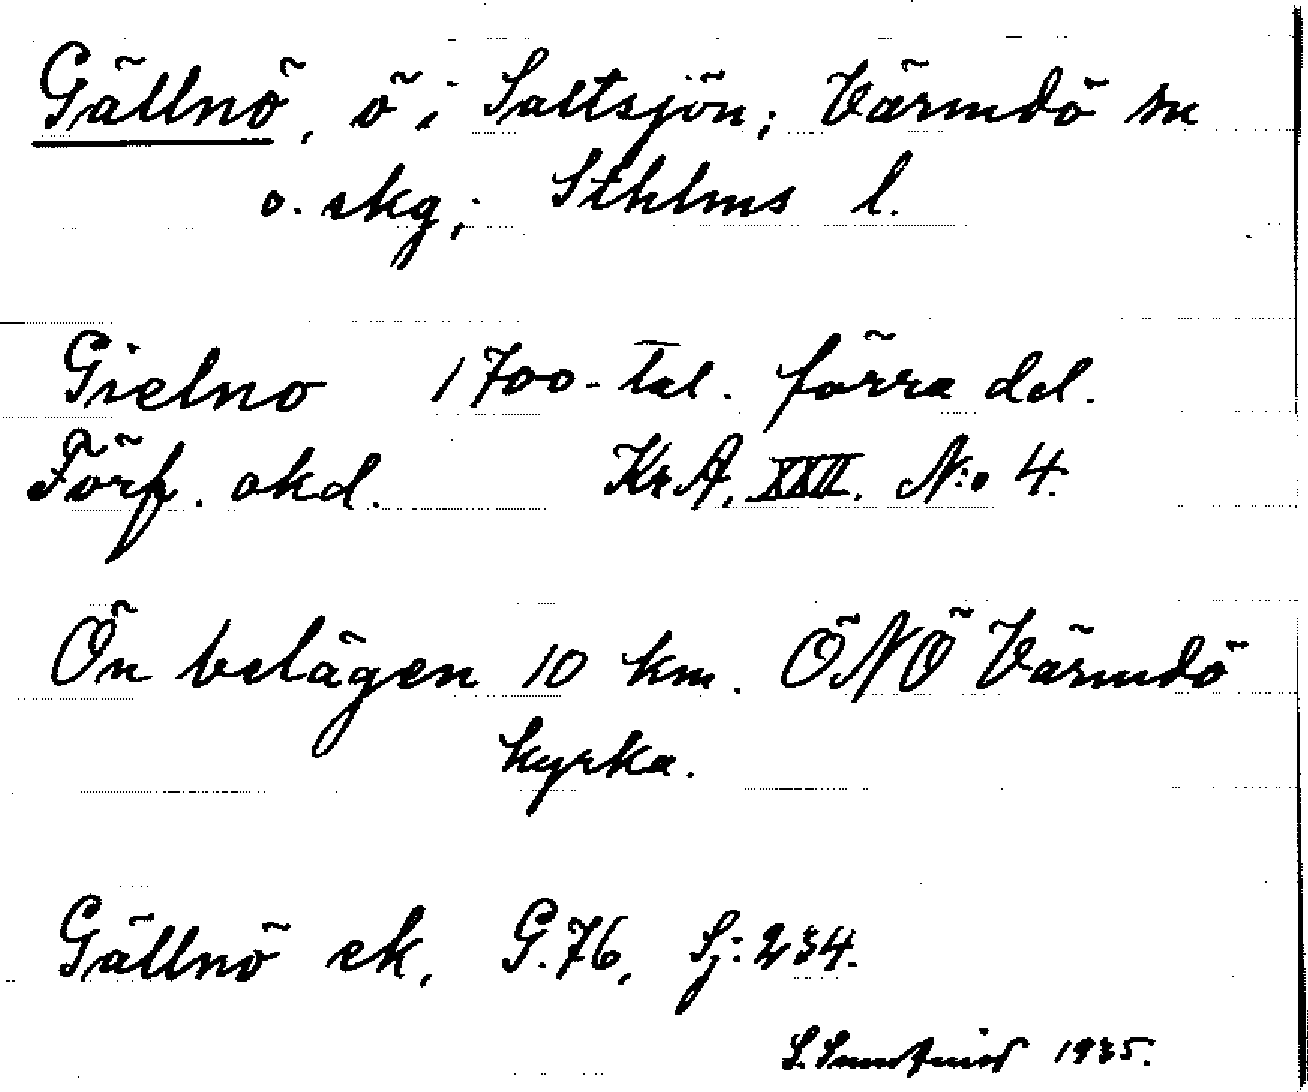 Gällnö, ö i Saltsjön; Värmdö sn
o. skg; Sthlms l.
Gielno 1700-tal. förra del.
Förf. okd. KrA, XXII. N:o 4.
Ön belägen 10 km. ÖNÖ Värmdö
kyrka.
Gällnö ek, G.76, Sj:234.
S. 1935.